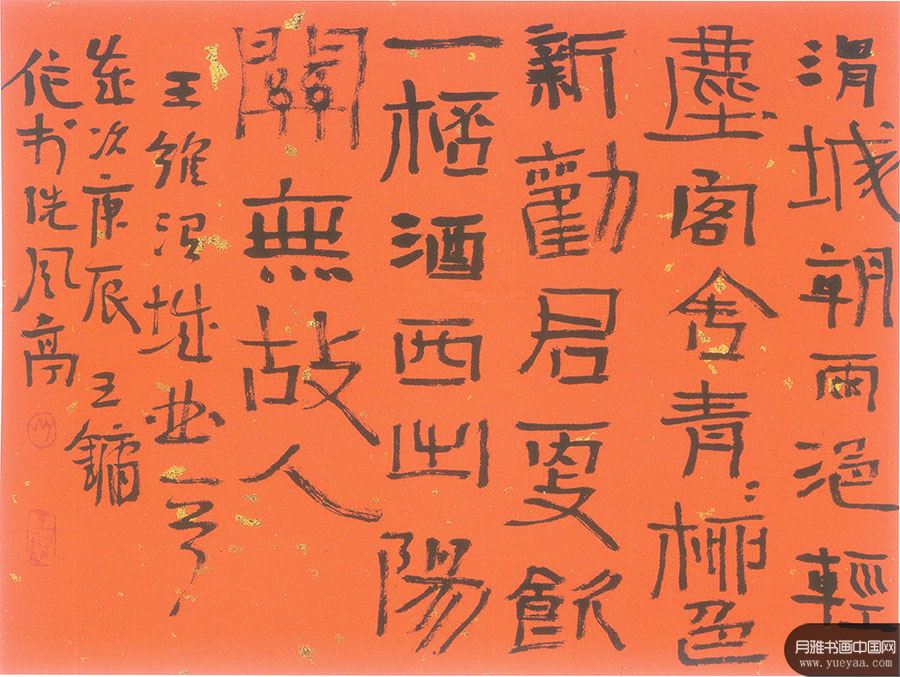 渭城朝雨浥輕
塵閣舍青〻柳色
新勸君更飲
一桮酒西出陽
關無故人
王維渭城曲一首
歲次庚辰王鏞
作书洗風亭
月雅书画中国网
www.yueyaa.com